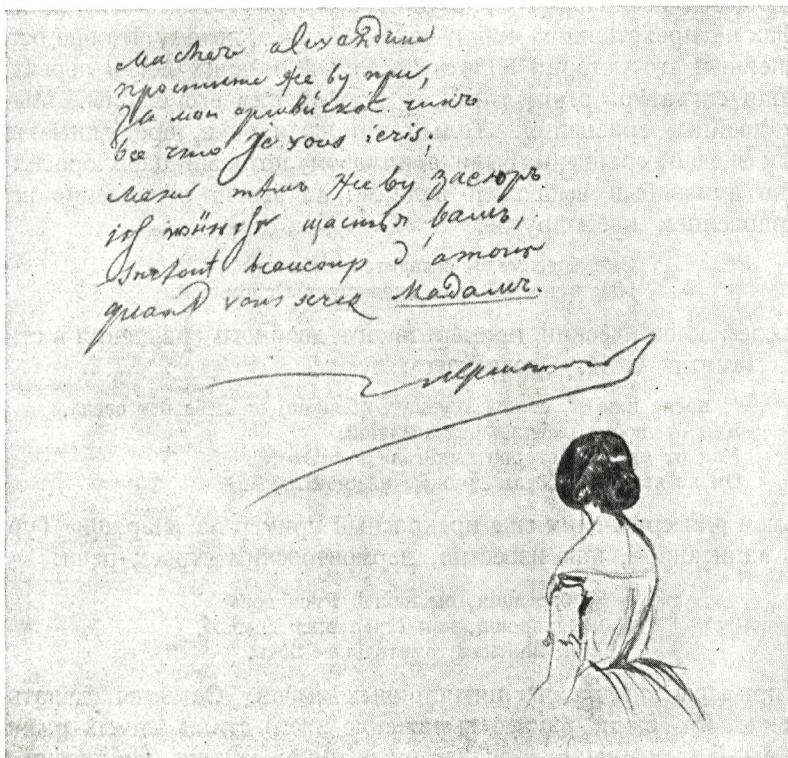 Ma cher alexandrine
простите же ву при,
За мой армейской чинъ
все что je vous ècris;
Межь тѣмъ же ву засюръ
ich wünsche щастья вамъ,
Surtout beaucoup d'amour
quand vous serez Мадамъ.
Лермонтовъ